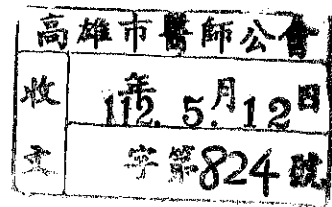 高雄市醫師公會
收文
112年5月12日
字第824號